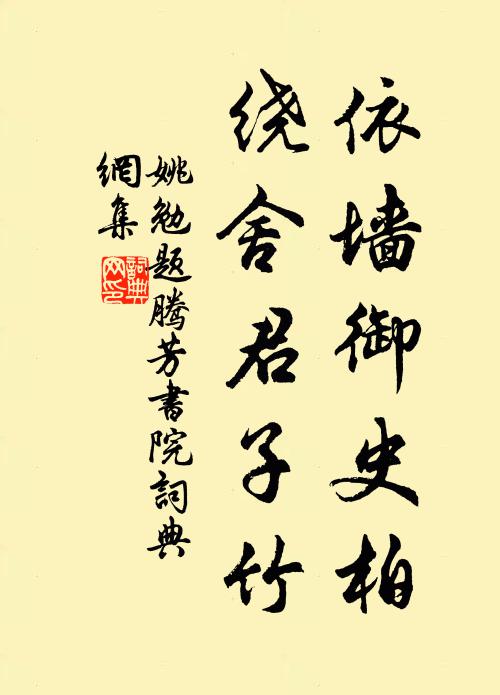 依墙御史柏
绕舍君子竹
姚勉题腾芳书院詞典
網集
詞典網印